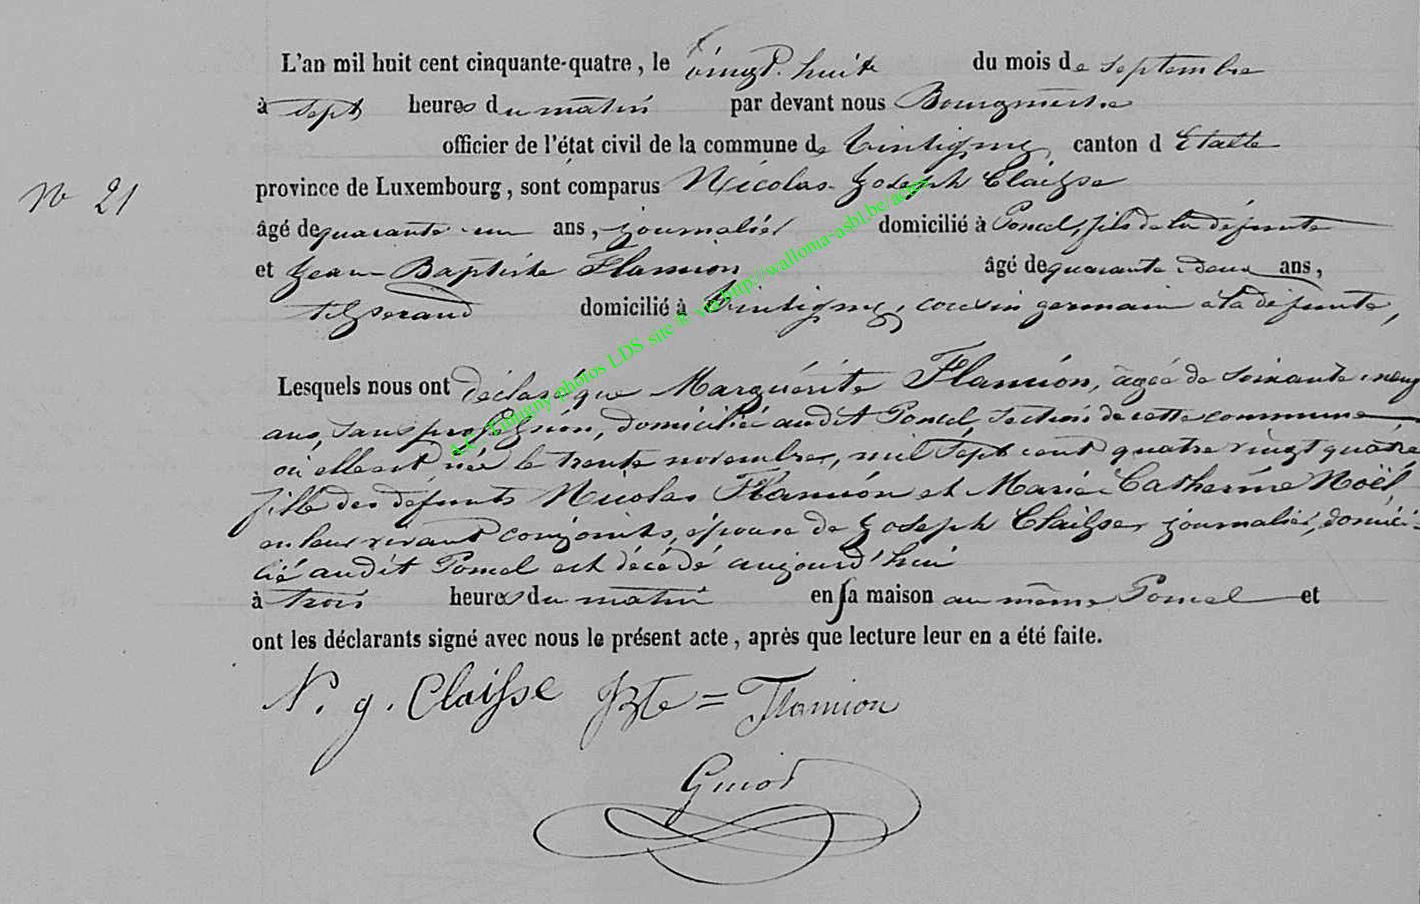 L'an mil huit cent cinquante-quatre, le vingt-huit du mois de septembre
à sept heures du matin par devant nous Bourgmestre
officier de l'état civil de la commune de Tintigny, canton d Etalle
N° 21
province de Luxembourg, sont comparus Nicolas Joseph Claisse
âgé de quarante-un ans, journalier domicilié à Poncel, fils de la défunte
et Jean-Baptiste Flamion âgé de quarante-deux ans,
tisserand domicilié à Tintigny, cousin germain à la défunte,
Lesquels nous ont déclaré que Marguérite Flamion, agée de soixante neuf
ans, sans profession, domiciliée audit Poncel, section de cette commune
où elle est née le trente novembre, mil sept cent quatre vingt quatre
fille des défunts Nicolas Flamion et Marie-Catherine Noël,
en leur vivant conjoints, épouse de Joseph Claisse, journalier, domici-
lié audit Poncel est décédé aujourd'hui
à trois heures du matin en sa maison au même Poncel et
ont les déclarants signé avec nous le présent acte, après que lecture leur en a été faite.
N. j. Claisse JBte = Flamion
Guiot
A.C. Tintigny photos LDS site & via http://wallonia-asbl.be/actes